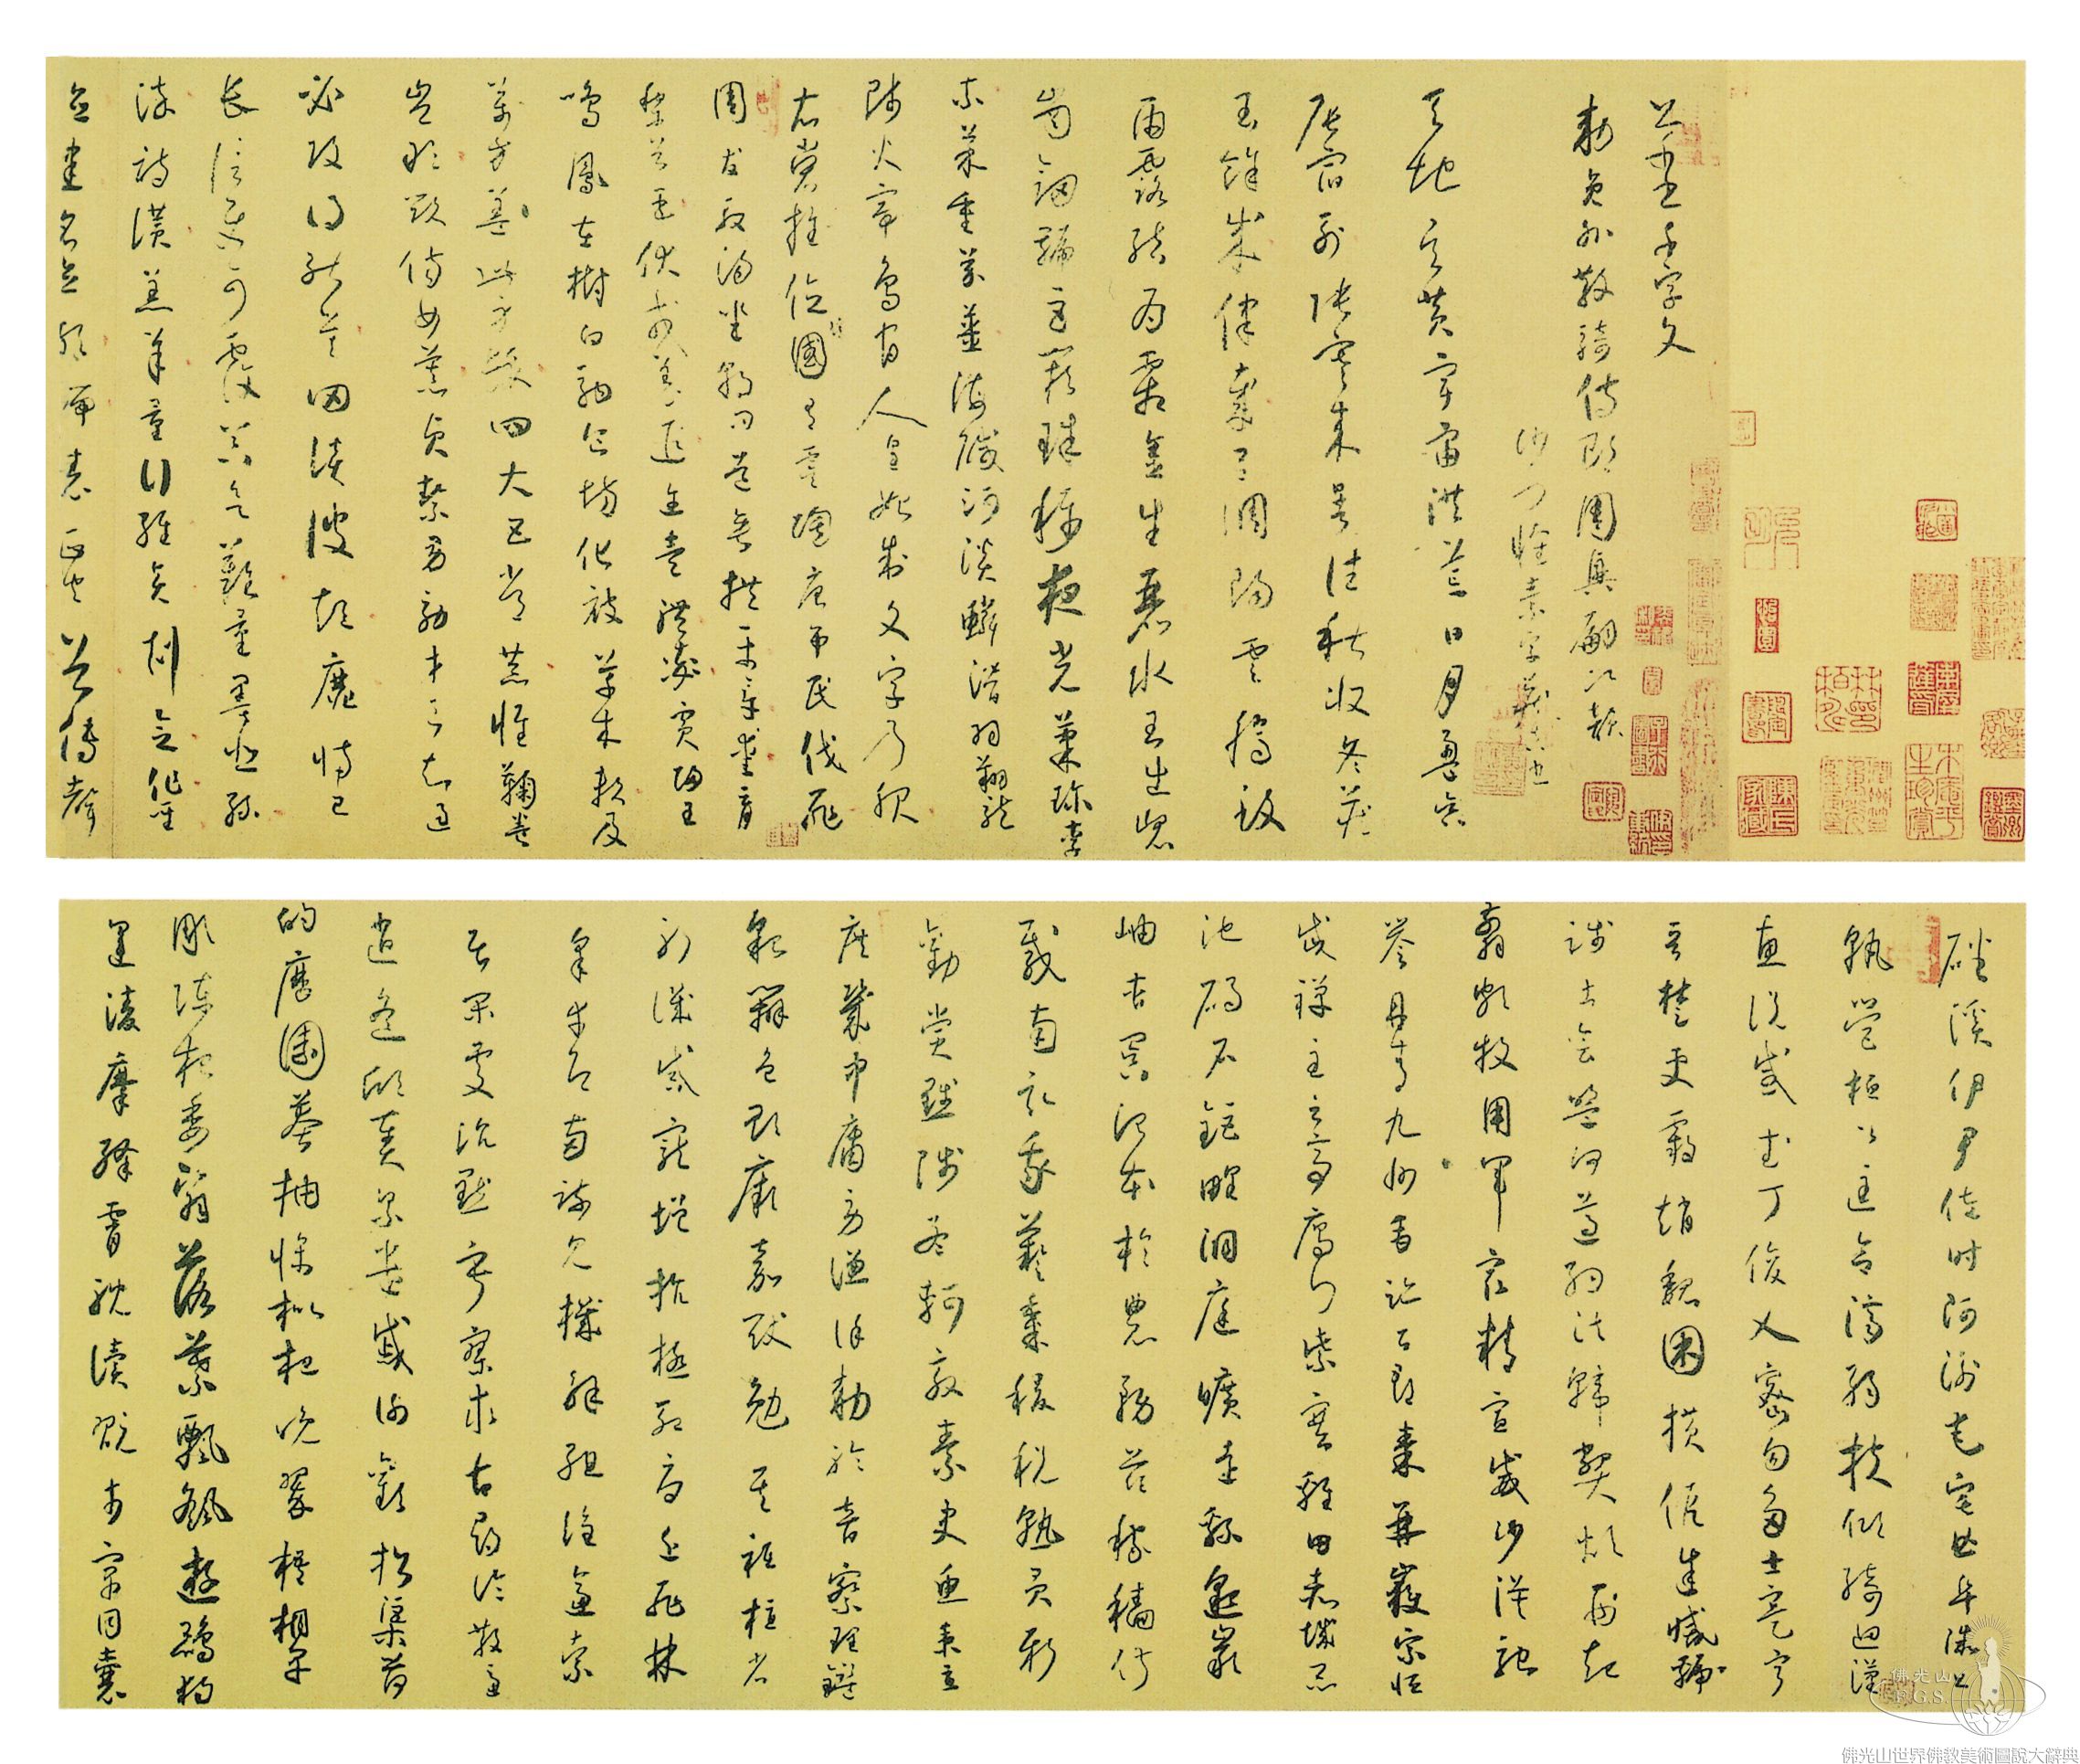 千字文
勅員外散騎侍郎周興嗣次韻
沙門懷素字藏真也
天地玄黃宇宙洪荒日月盈昃
辰宿列張寒來暑往秋收冬藏
閏餘成律歲呂調陽雲騰致
雨露結為霜金生麗水玉出崑
崗劍號巨闕珠稱夜光菓珍李
柰菜重芥薑海鹹河淡鱗潛羽翔龍
師火帝鳥官人皇始制文字乃服
衣裳推位讓國有虞陶唐弔民伐罪
周發殷湯坐朝問道垂拱平章愛育
黎首臣伏戎羌遐邇壹體率賓歸王
鳴鳳在樹白駒食場化被草木賴及
萬方蓋此身髮四大五常恭惟鞠養
豈敢毀傷女慕貞絜男效才良知過
必改得能莫忘罔談彼短靡恃己
長信使可覆器欲難量墨悲絲
染詩讚羔羊景行維賢剋念作聖
德建名立形端表正空谷傳聲
磻溪伊尹佐時阿衡奄宅曲阜微旦
孰營桓公匡合濟弱扶傾綺迴漢
惠說感武丁俊乂密勿多士寔寧
晉楚更霸趙魏困橫假途滅虢
踐土會盟何遵約法韓弊煩刑起
翦頗牧用軍最精宣威沙漠馳
譽丹青九州禹跡百郡秦并嶽宗恒
岱禪主云亭雁門紫塞雞田赤城昆
池碣石鉅野洞庭曠遠綿邈巖
岫杳冥治本於農務茲稼穡俶
載南畝我藝黍稷稅熟貢新
勸賞黜陟孟軻敦素史魚秉直
庶幾中庸勞謙謹勅聆音察理鑑
貌辨色貽厥嘉猷勉其祗植省
躬譏誡寵增抗極殆辱近恥林
皋幸即兩疏見機解組誰逼索
居閑處沉默寂寥求古尋論散慮
逍遙欣奏累遣慼謝歡招渠荷
的歷園莽抽條枇杷晚翠梧桐早
彫陳根委翳落葉飄颻遊鵾獨
運凌摩絳霄耽讀翫市寓目囊
佛光山
F.G.S.
佛光山世界佛教美術圖說大辭典